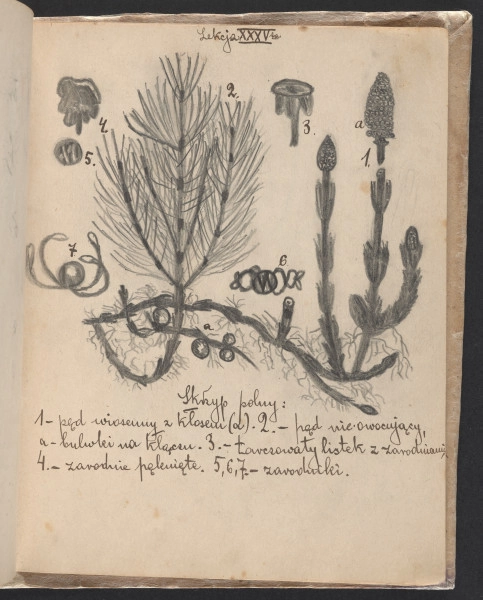 Lekcja XXXVta
2.
a
4.
3.
1.
5.
7
6
a
Skrzyp polny:
1- pęd wiosenny z kłosem (a). 2.- pęd nie owocujący,
a- bulwki na kłączu. 3.- tarczowaty listek z zarodniami,
4.- zarodnie pęknięte. 5,6,7.- zarodniki.